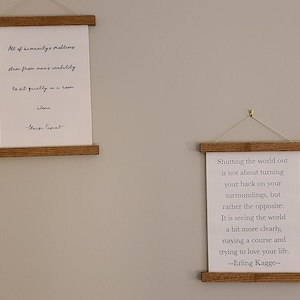 All of humanity's problems
stem from man's inability
to sit quietly in a room
alone.
-Blaise Pascal
Shutting the world out
is not about turning
your back on your
surroundings, but
rather the opposite:
It is seeing the world
a bit more clearly,
staying a course and
trying to love your life.
--Erling Kagge--